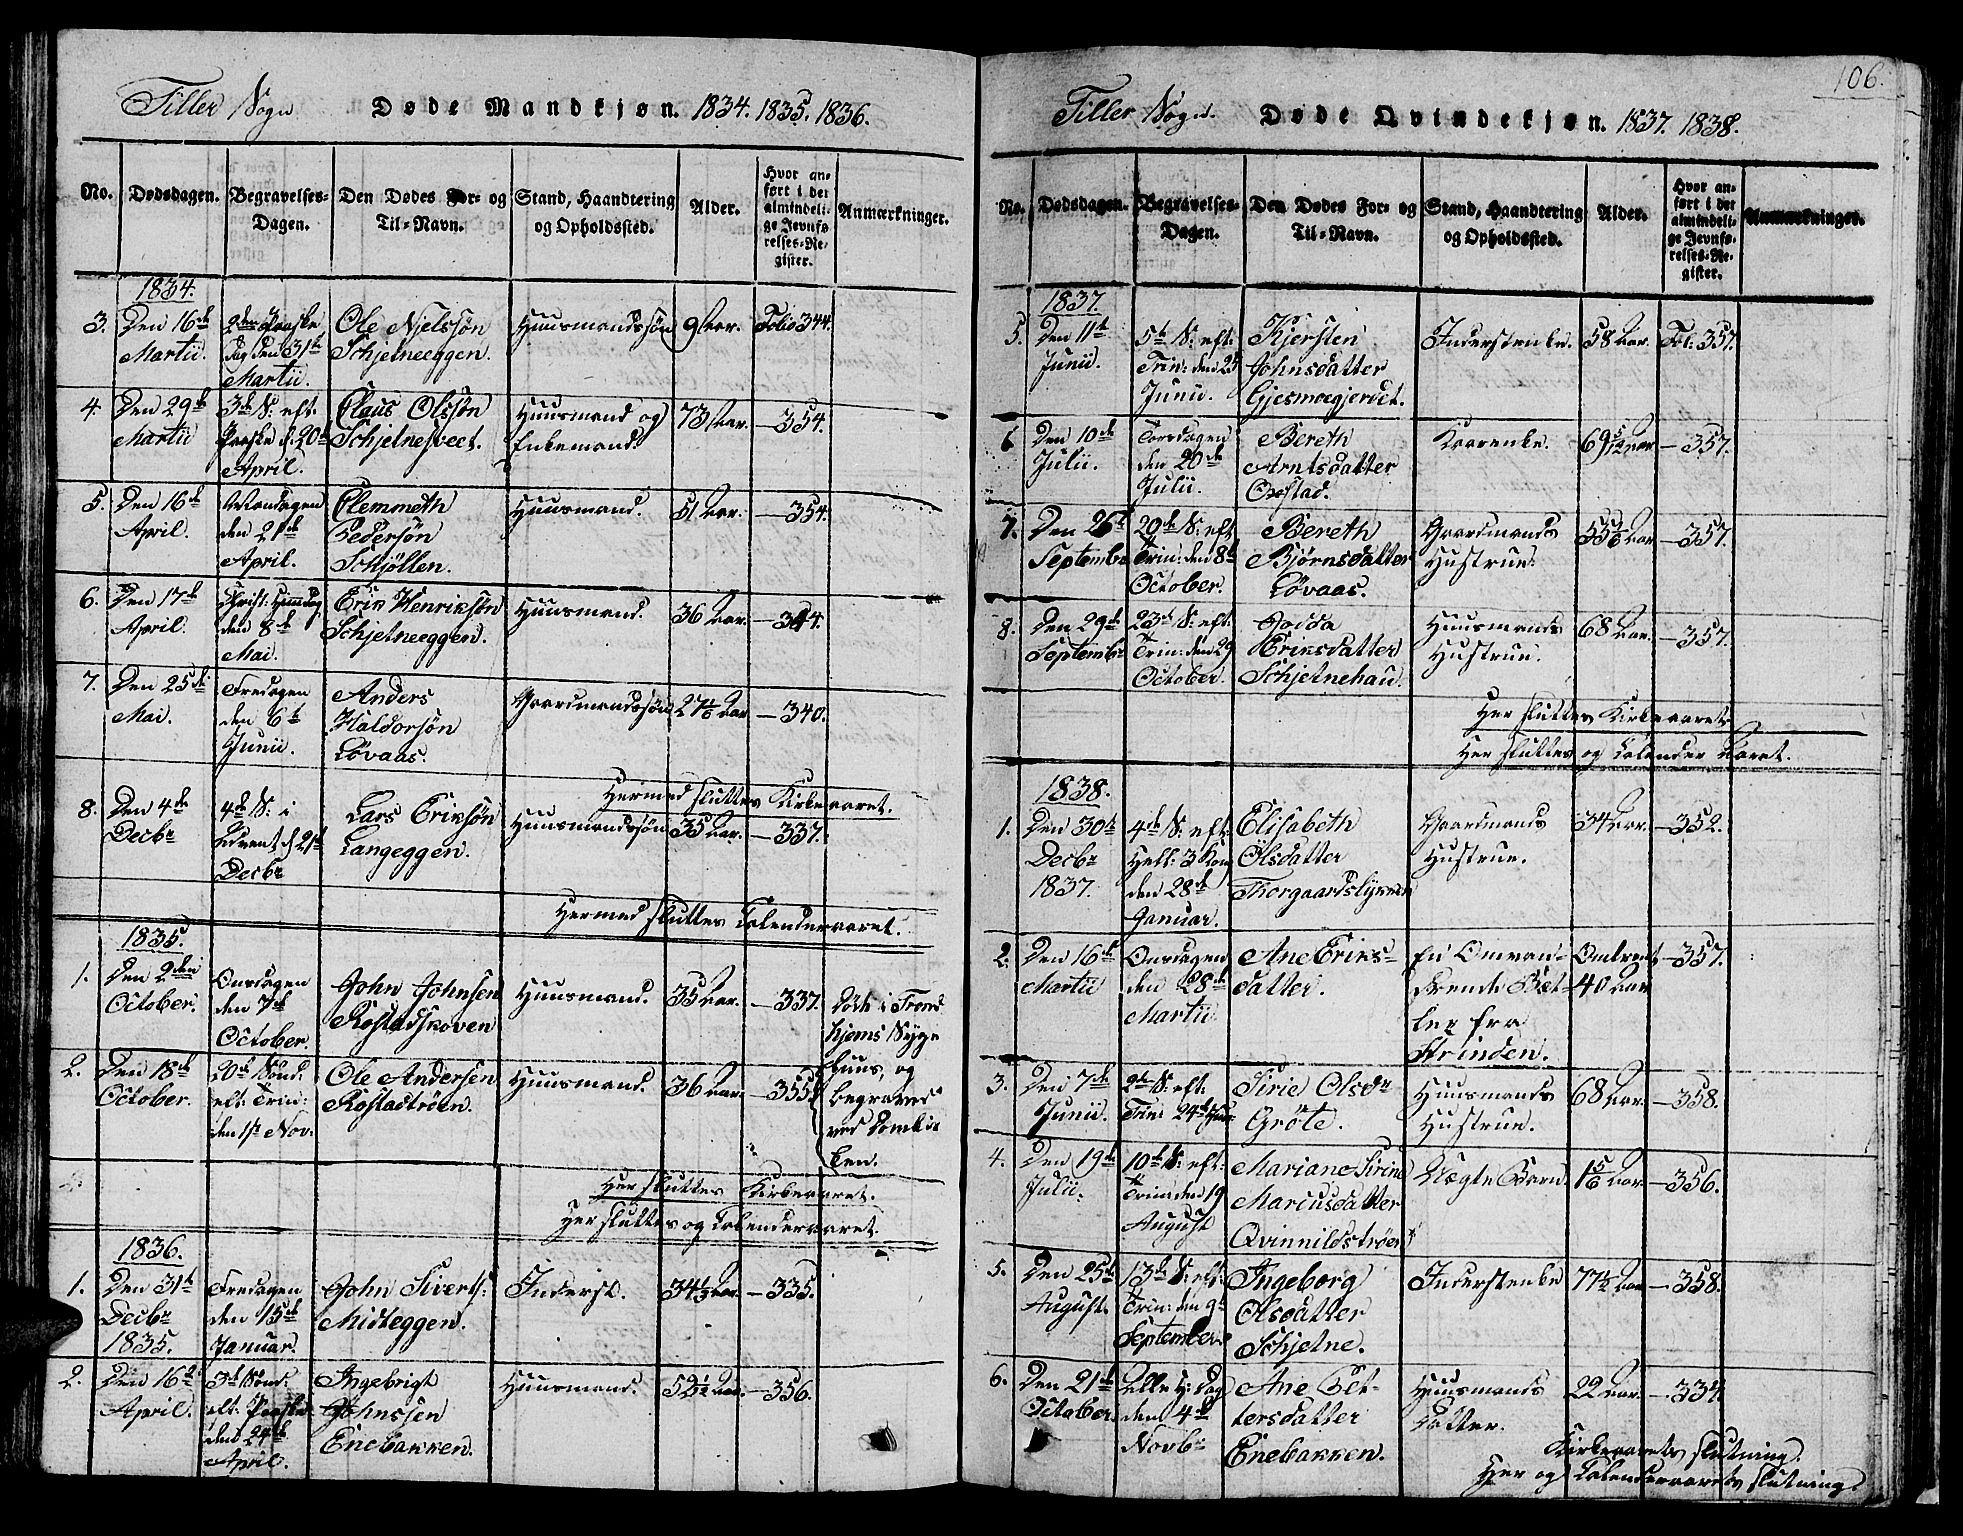 Tiller Sogn Døde Mandkjøn. 1834. 1835. 1836.
No. Dødsdagen. Begravelses-Dagen. Den Dødes For- og Til-Navn. Stand, Haandtering og Opholdssted. Alder. Hvor anført i det almindelige Jevnførelses-Register. Anmærkninger.
1834.
3. Den 16de Martii. 2den Paaske Dag den 31te Martii. Ole Njelssøn Schjetneeggen. Huusmandssøn 9 Aar. Folio 344.
4. Den 29de Martii 3die S: eft. Paaske d. 20de April. Claus Olssøn Schjetnesveet. Huusmand og Enkemand. 73 Aar. — 354.
5. Den 16de April. Mandagen den 21de April. Clemmeth Pedersøn Schjøllen. Huusmand. 51 Aar. — 354.
6. Den 17de April. Christ: Himmdag den 8de Mai. Erik Henriksøn Schjetneeggen. Huusmand. 36 Aar. — 344.
7. Den 25de Mai. Fredagen den 6te Junii. Anders Haldorsøn Løvaas. Gaardmandssøn 27 1/6 Aar — 340.
Hermed sluttes Kirkeaaret.
8. Den 4de Decbr 4de S: i Advent d 21de Decbr Lars Eriksøn Langeggen. Huusmandssøn 35 Aar. — 337.
Hermed sluttes Calenderaaret.
1835.
1. Den 2den October. Onsdagen den 7de October. John Johnsen Rostadskoven Huusmand. 35 Aar. — 337. Døde i Trondhjems Sygehuus, og begraved ved Domkirken.
2. Den 18de October. 20de Sønd. eft. Trin: den 1ste Nov: Ole Andersen Rostadtrøen. Huusmand. 36 Aar. — 355.
Her sluttes Kirkeaaret.
Her sluttes og Calenderaaret.
1836.
1. Den 31te Decbr 1835. Fredagen den 15de Januar. John Siverts: Midteggen. Inderst. 34 1/3 Aar. — 335.
2. Den 16de April. 3de Sønd. eft. Paaske den 24de April. Ingebrigt Johnssen Enebakken. Huusmand. 52 1/2 Aar. — 356.
106.
Tiller Sogn. Døde Qvindekjøn. 1837. 1838.
No. Dødsdagen. Begravelses-Dagen. Den Dødes For- og Til-Navn. Stand, Haandtering og Opholdssted. Alder. Hvor anført i det almindelige Jevnførelses-Register. Anmærkninger.
1837.
5. Den 11te Junii. 5te S: eft: Trin: den 25 Junii. Kjersten Johnsdatter Gjesmoegjerdet. Inderstenke. 58 Aar. Fol: 357.
6 Den 10de Julii. Torsdagen den 20de Julii. Bereth Arntsdatter Oxstad. Kaarenke. 69 5/12 Aar — 357.
7. Den 26de Septembr 20de S: eft Trin: den 8de October. Bereth Bjørnsdatter Løvaas. Gaardmands Hustrue. 55 1/6 Aar — 357.
8. Den 29de Septembr 23de S: eft. Trin: den 29 October. Godda Eriksdatter Schjetnehau. Huusmands Hustrue. 68 Aar. — 357.
Her sluttes Kirkeaaret.
Her sluttes og Calender Aaret.
1838.
1. Den 30te Decbr 1837. 4de S: eft: Hell: 3 Kong den 28de Januar. Elisabeth Olsdatter Thorgaardslykken Gaardmands Hustrue. 34 Aar. — 352.
2. Den 16de Martii Onsdagen den 28de Martii Ane Eriksdatter. En Omvandrende Betler fra Strinden. Omtrent 40 Aar — 357.
3. Den 7de Junii. 2de S: eft: Trin: 24de Juni Sirie Olsdr Grøte. Huusmands Hustrue. 68 Aar. — 358.
4. Den 19de Julii. 10de S: eft: Trin: den 19 August Mariane Sirine Marcusdatter Qvinnildstrøen Uægte Barn. 1 5/6 Aar. — 356.
5. Den 25de August. 13de S: eft: Trin: den 9de September Ingeborg Olsdatter Schjetne. Inderstenke 77 1/2 Aar — 358.
6. Den 21de October. Alle H: Dag den 4de Novbr Ane Pettersdatter Enebakken. Huusmands Datter. 22 Aar. — 334.
Kirkeaarets slutning.
Her og Calenderaarets slutning.